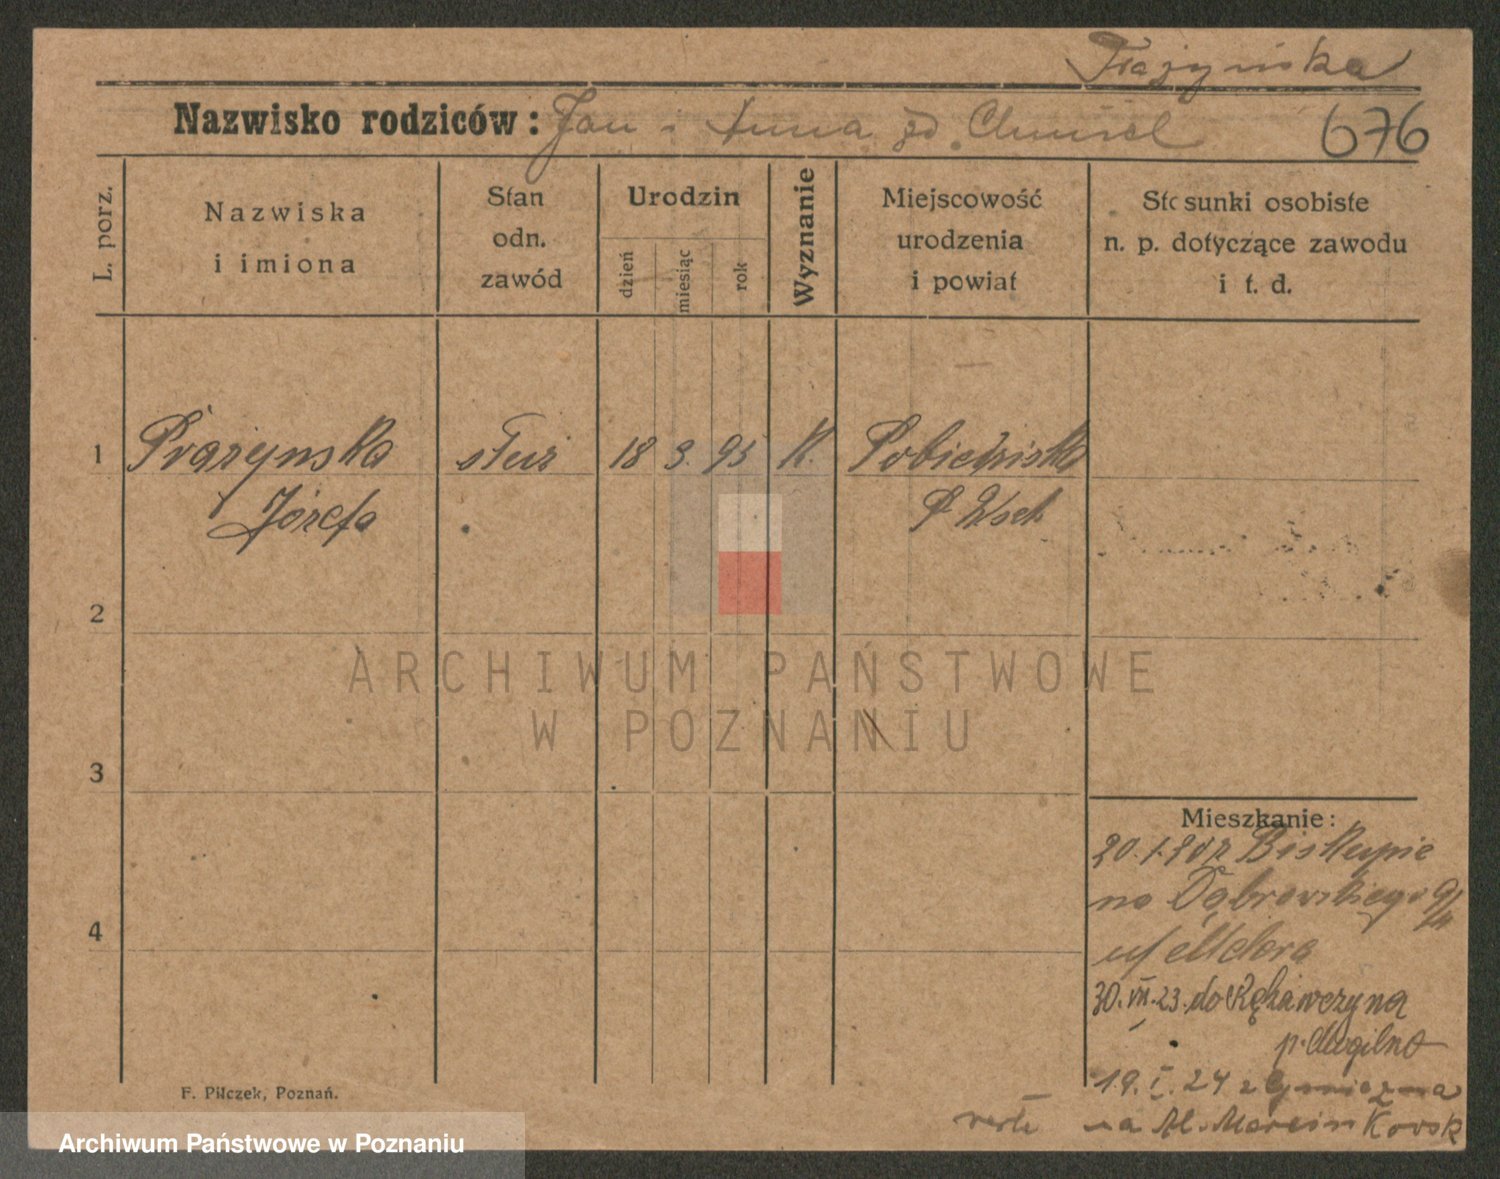 Prażyńska
Nazwisko rodziców: Jan i Anna zd. Chmiel
676
L. porz.
Nazwiska
i imiona
Stan
odn.
zawód
Urodzin
dzień
miesiąc
rok
Wyznanie
Miejscowość
urodzenia
i powiat
Stosunki osobiste
n. p. dotyczące zawodu
i t. d.
1 Prażynska służ 18 3. 95 K. Pobiedziska
Józefa P. Wsch
2
ARCHIWUM PAŃSTWOWE
W POZNANIU
3
Mieszkanie:
20.1. z Biskupic
na Dąbrowskiego
4
u/
30.VII.23. do
p. Mogilno
19.I.24 z Gniezna
na Al. Marcinkowsk
verte
F. Pilczek, Poznań.
Archiwum Państwowe w Poznaniu